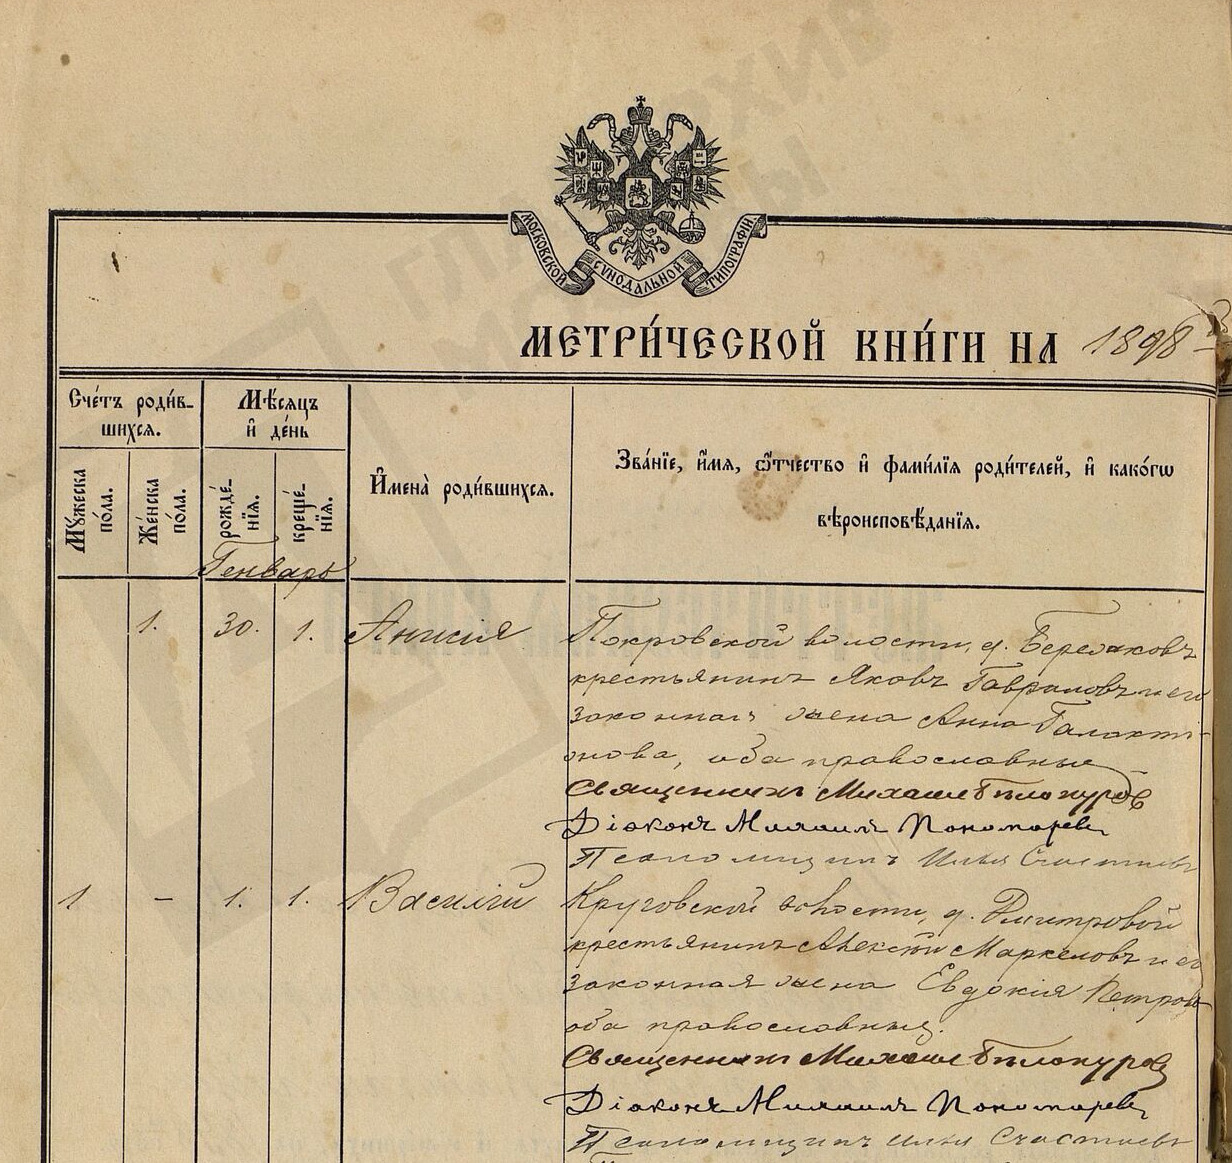 МОСКОВСКОЙ СѴНОДАЛЬНОЙ ТИПОГРАФІИ.
МЕТРИ́ЧЕСКОЙ КНИ́ГИ НА 1898
Сче́тъ роди́в-
шихся.
Мѣ́сяцъ
и҆ де́нь
Мꙋ́жеска
по́ла.
Же́нска
по́ла.
рожде́-
нїя.
креще́-
нїя.
И҆мена̀ роди́вшихся.
Зва́нїе, и҆́мя, ѻ҆́тчество и҆ фами́лїя роди́телей, и҆ како́гѡ
вѣроисповѣ́данїя.
Генварь
1. 30. 1. Анисія Покровской волости, д.
крестьянинъ Яковъ Гавриловъ и его
законная жена Анна Галакті-
онова, оба православные
Священникъ Михаилъ Бѣлокуровъ
Діаконъ Михаилъ Пономаревъ
Псаломщикъ Илья Счастневъ
1 — 1. 1. Василій Круговской волости, д. Дмитровой
крестьянинъ Алексѣй Маркеловъ и его
законная жена Евдокія Петрова
оба православные.
Священникъ Михаилъ Бѣлокуровъ
Діаконъ Михаилъ Пономаревъ
Псаломщикъ Илья Счастневъ